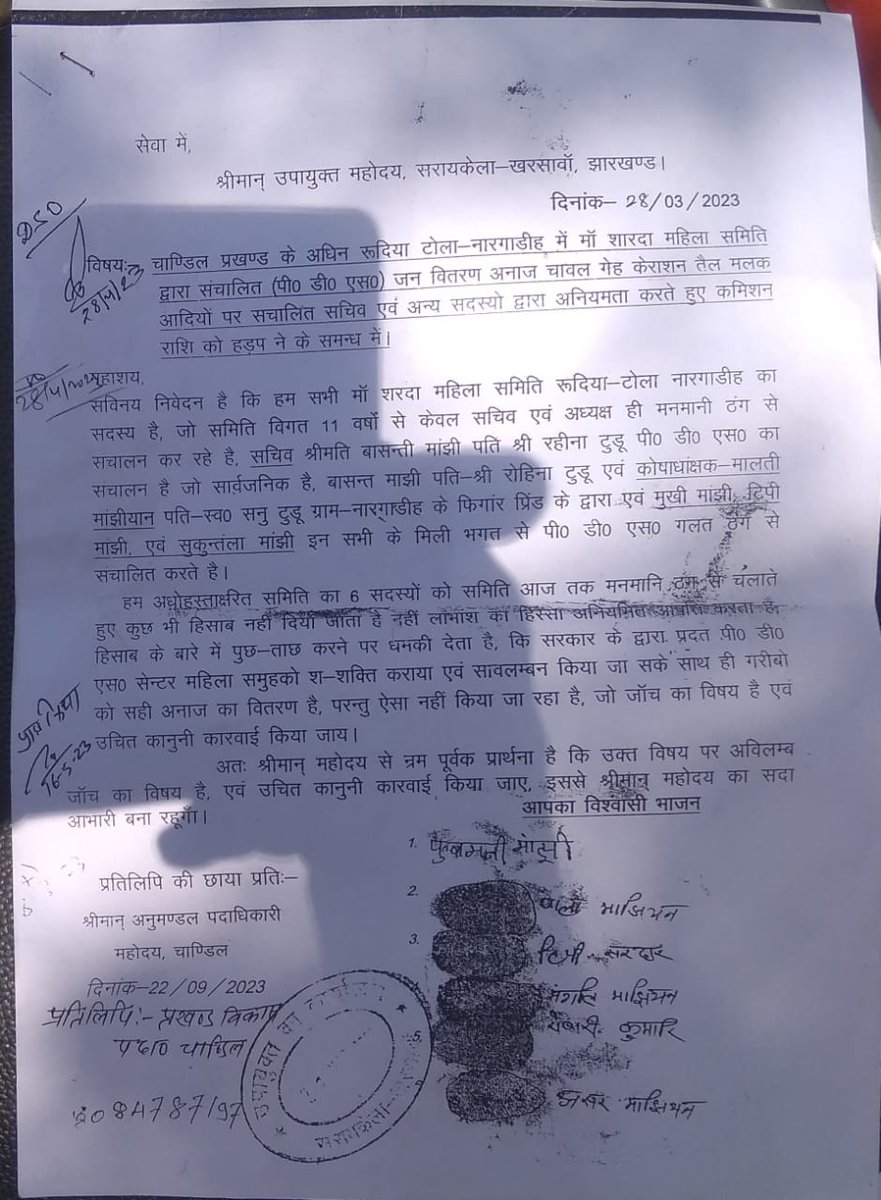 सेवा में,
श्रीमान् उपायुक्त महोदय, सरायकेला–खरसावाँ, झारखण्ड।
दिनांक– 28/03/2023
DSO
विषयः चाण्डिल प्रखण्ड के अधिन रूदिया टोला–नारगाडीह में माँ शारदा महिला समिति
द्वारा संचालित (पी० डी० एस०) जन वितरण अनाज चावल गेह केराशन तैल मलक
आदियों पर सचालित सचिव एवं अन्य सदस्यो द्वारा अनियमता करते हुए कमिशन
राशि को हड़प ने के समन्ध में।
महाशय,
सविनय निवेदन है कि हम सभी माँ शरदा महिला समिति रूदिया–टोला नारगाडीह का
सदस्य है, जो समिति विगत 11 वर्षो से केवल सचिव एवं अध्यक्ष ही मनमानी ठंग से
संचालन कर रहे है, सचिव श्रीमति बासन्ती मांझी पति श्री रहीना टुडू पी० डी० एस० का
संचालन है जो सार्वजनिक है, बासन्त माझी पति–श्री रोहिना टुडू एवं कोषाधांक्षक–मालती
मांझीयान पति–स्व० सनु टुडू ग्राम–नारगाडीह के फिगांर प्रिंड के द्वारा एवं मुखी मांझी, टिपी
मांझी, एवं सुकुन्तंला मांझी इन सभी के मिली भगत से पी० डी० एस० गलत ठंग से
संचालित करते है।
हम अधोहस्ताक्षरित समिति का 6 सदस्यों को समिति आज तक मनमानि ठंग से चलाते
हुए कुछ भी हिसाब नहीं दिया जाता है नहीं लाभांश का हिस्सा अनियमित आपति करता है,
हिसाब के बारे में पुछ–ताछ करने पर धमकी देता है, कि सरकार के द्वारा प्रदत पी० डी०
एस० सेन्टर महिला समुहको श–शक्ति कराया एवं सावलम्बन किया जा सके साथ ही गरीबो
को सही अनाज का वितरण है, परन्तु ऐसा नहीं किया जा रहा है, जो जाँच का विषय है एवं
उचित कानुनी कारवाई किया जाय।
अतः श्रीमान् महोदय से न्रम पूर्वक प्रार्थना है कि उक्त विषय पर अविलम्ब
जाँच का विषय है, एवं उचित कानुनी कारवाई किया जाए, इससे श्रीमान् महोदय का सदा
आभारी बना रहूगाँ।
आपका विश्वासी भाजन
1. फुलमनी माझी
2. माझियन
3. टिपी सरदार
मंगलि माझियन
5. कुमारि
माझियन
प्रतिलिपि की छाया प्रतिः–
श्रीमान् अनुमण्डल पदाधिकारी
महोदय, चाण्डिल
दिनांक–22/09/2023
प्रतिलिपि:– प्रखण्ड विकास
पदा० चांडिल
उपायुक्त का कार्यालय
सरायकेला